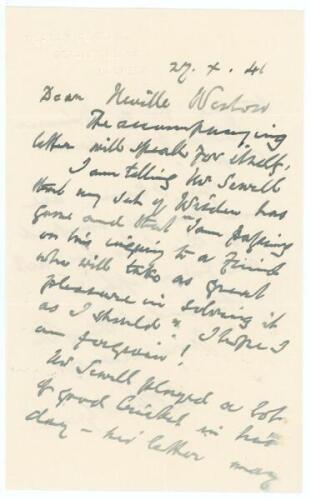 27. X. 41
Dear Neville Weston
The accompanying
letter will speak for itself.
I am telling Mr Sewell
that my set of Wisden has
gone and that "I am passing
on his inquiry to a friend
who will take as great
pleasure in solving it
as I should". I hope I
am forgiven!
Mr Sewell played a lot
of good cricket in his
day – his letter may